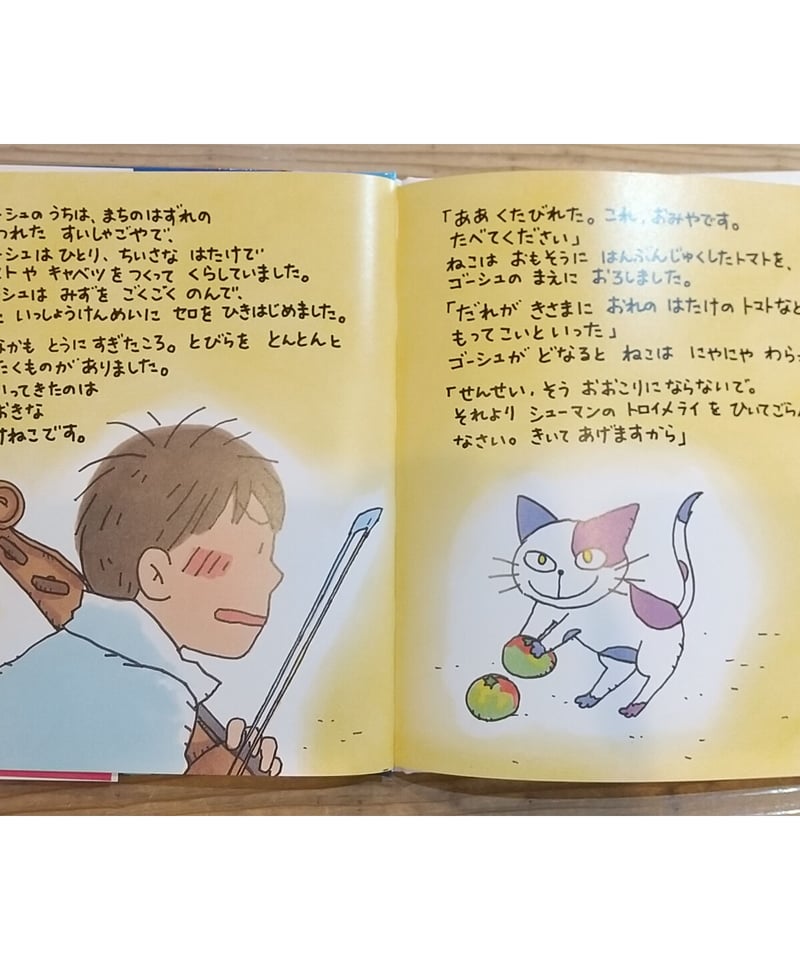 シュのうちは、まちのはずれの
われた すいしゃごやで、
シュはひとり、ちいさな はたけで
トや キャベツをつくって くらしていました。
シュは みずを ごくごく のんで、
いっしょうけんめいに セロを ひきはじめました。
なかも とうにすぎたころ。とびらを とんとんと
たくものがありました。
いってきたのは
おきな
けねこです。
「ああくたびれた。これ、おみやです。
たべてください」
ねこは おもそうに はんぶんじゅくしたトマトを、
ゴーシュの まえに おろしました。
「だれが きさまに おれの はたけのトマトなど
もってこいといった」
ゴーシュが どなると ねこは にやにや わらっ
「せんせい、そう おおこりにならないで。
それより シューマンの トロイメライ を ひいてごらん
なさい。きいて あげますから」